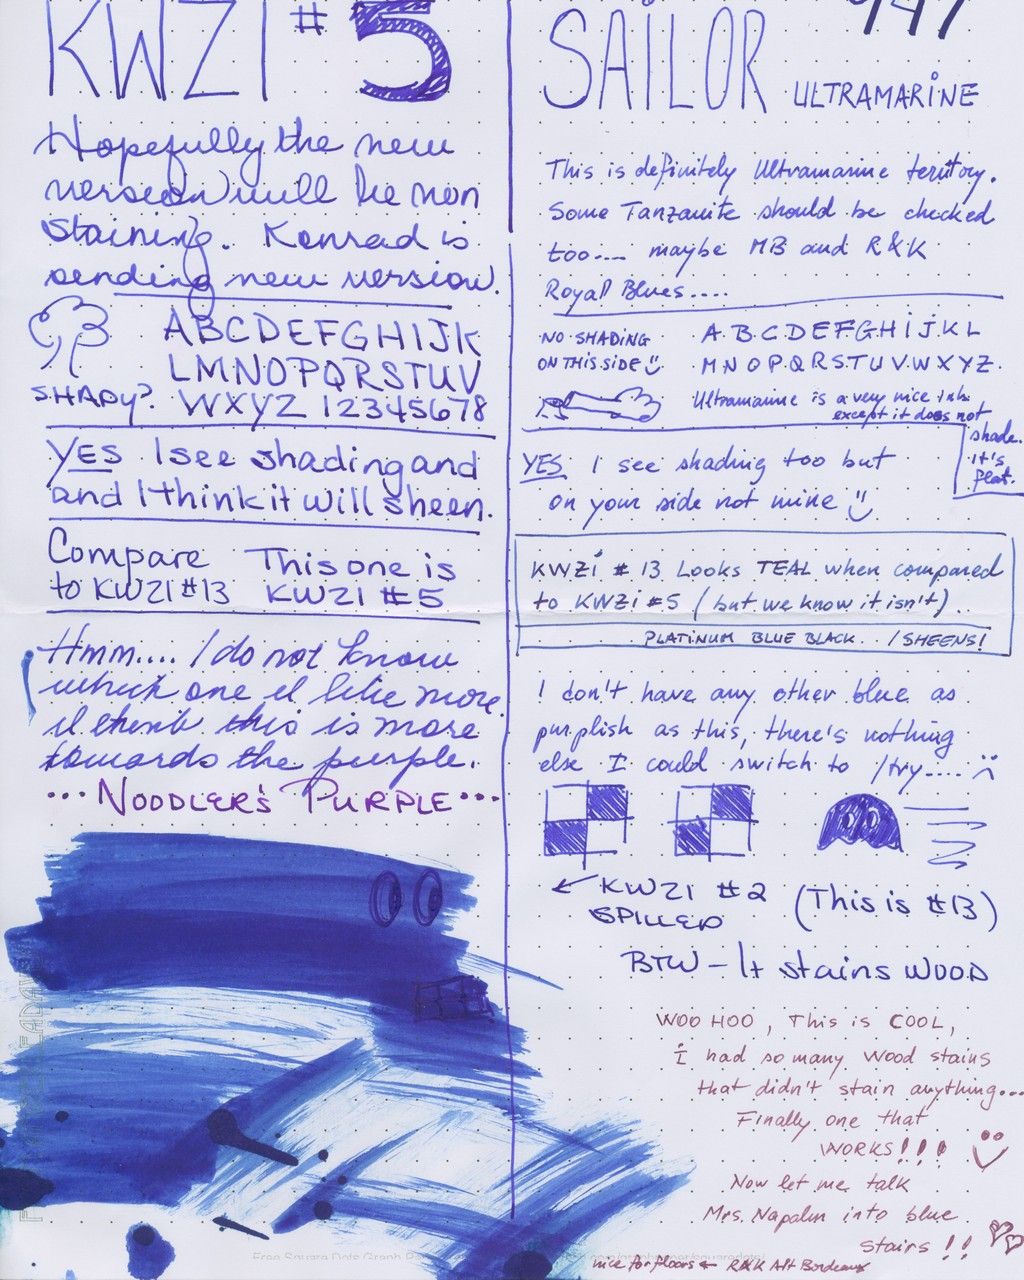 KWZI #5
Hopefully the new
version will be non
staining. Konrad is
sending new version.
ABCDEFGHIJK
LMNOPQRSTUV
SHADY? WXYZ 12345678
YES I see shading and
and I think it will sheen.
Compare
to KWZI #13
This one is
KWZI #5
Hmm.... I do not know
which one I like more
I think this is more
towards the purple.
... NOODLER'S PURPLE ...
SAILOR
ULTRAMARINE
This is definitely Ultramarine territory.
Some Tanzanite should be checked
too.... maybe MB and R&K
Royal Blues....
NO SHADING
ON THIS SIDE
A.B.C.DEFGHIJKL
MNOPQRSTUVWXYZ.
Ultramarine is a very nice ink
except it does not
shade.
it's
flat.
YES I see shading too but
on your side not mine
KWZI # 13 Looks TEAL when compared
to KWZI #5 (but we know it isn't)
PLATINUM BLUE BLACK. /SHEENS!
I don't have any other blue as
purplish as this, there's nothing
else I could switch to /try....
← KWZI #2
SPILLED
(This is #13)
BTW - It stains WOOD
WOO HOO, This is COOL,
I had so many wood stains
that didn't stain anything...
Finally one that
WORKS!!!
Now let me talk
Mrs. Napalm into blue
stairs!!
nice for floors ← R&K Alt Bordeaux
Free Square Dots Graph